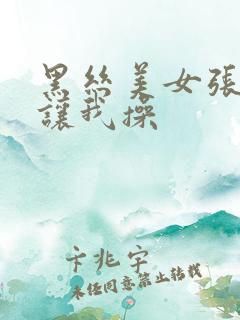 黑丝美女张
让我操
卡兆宇
未经同意禁止转载